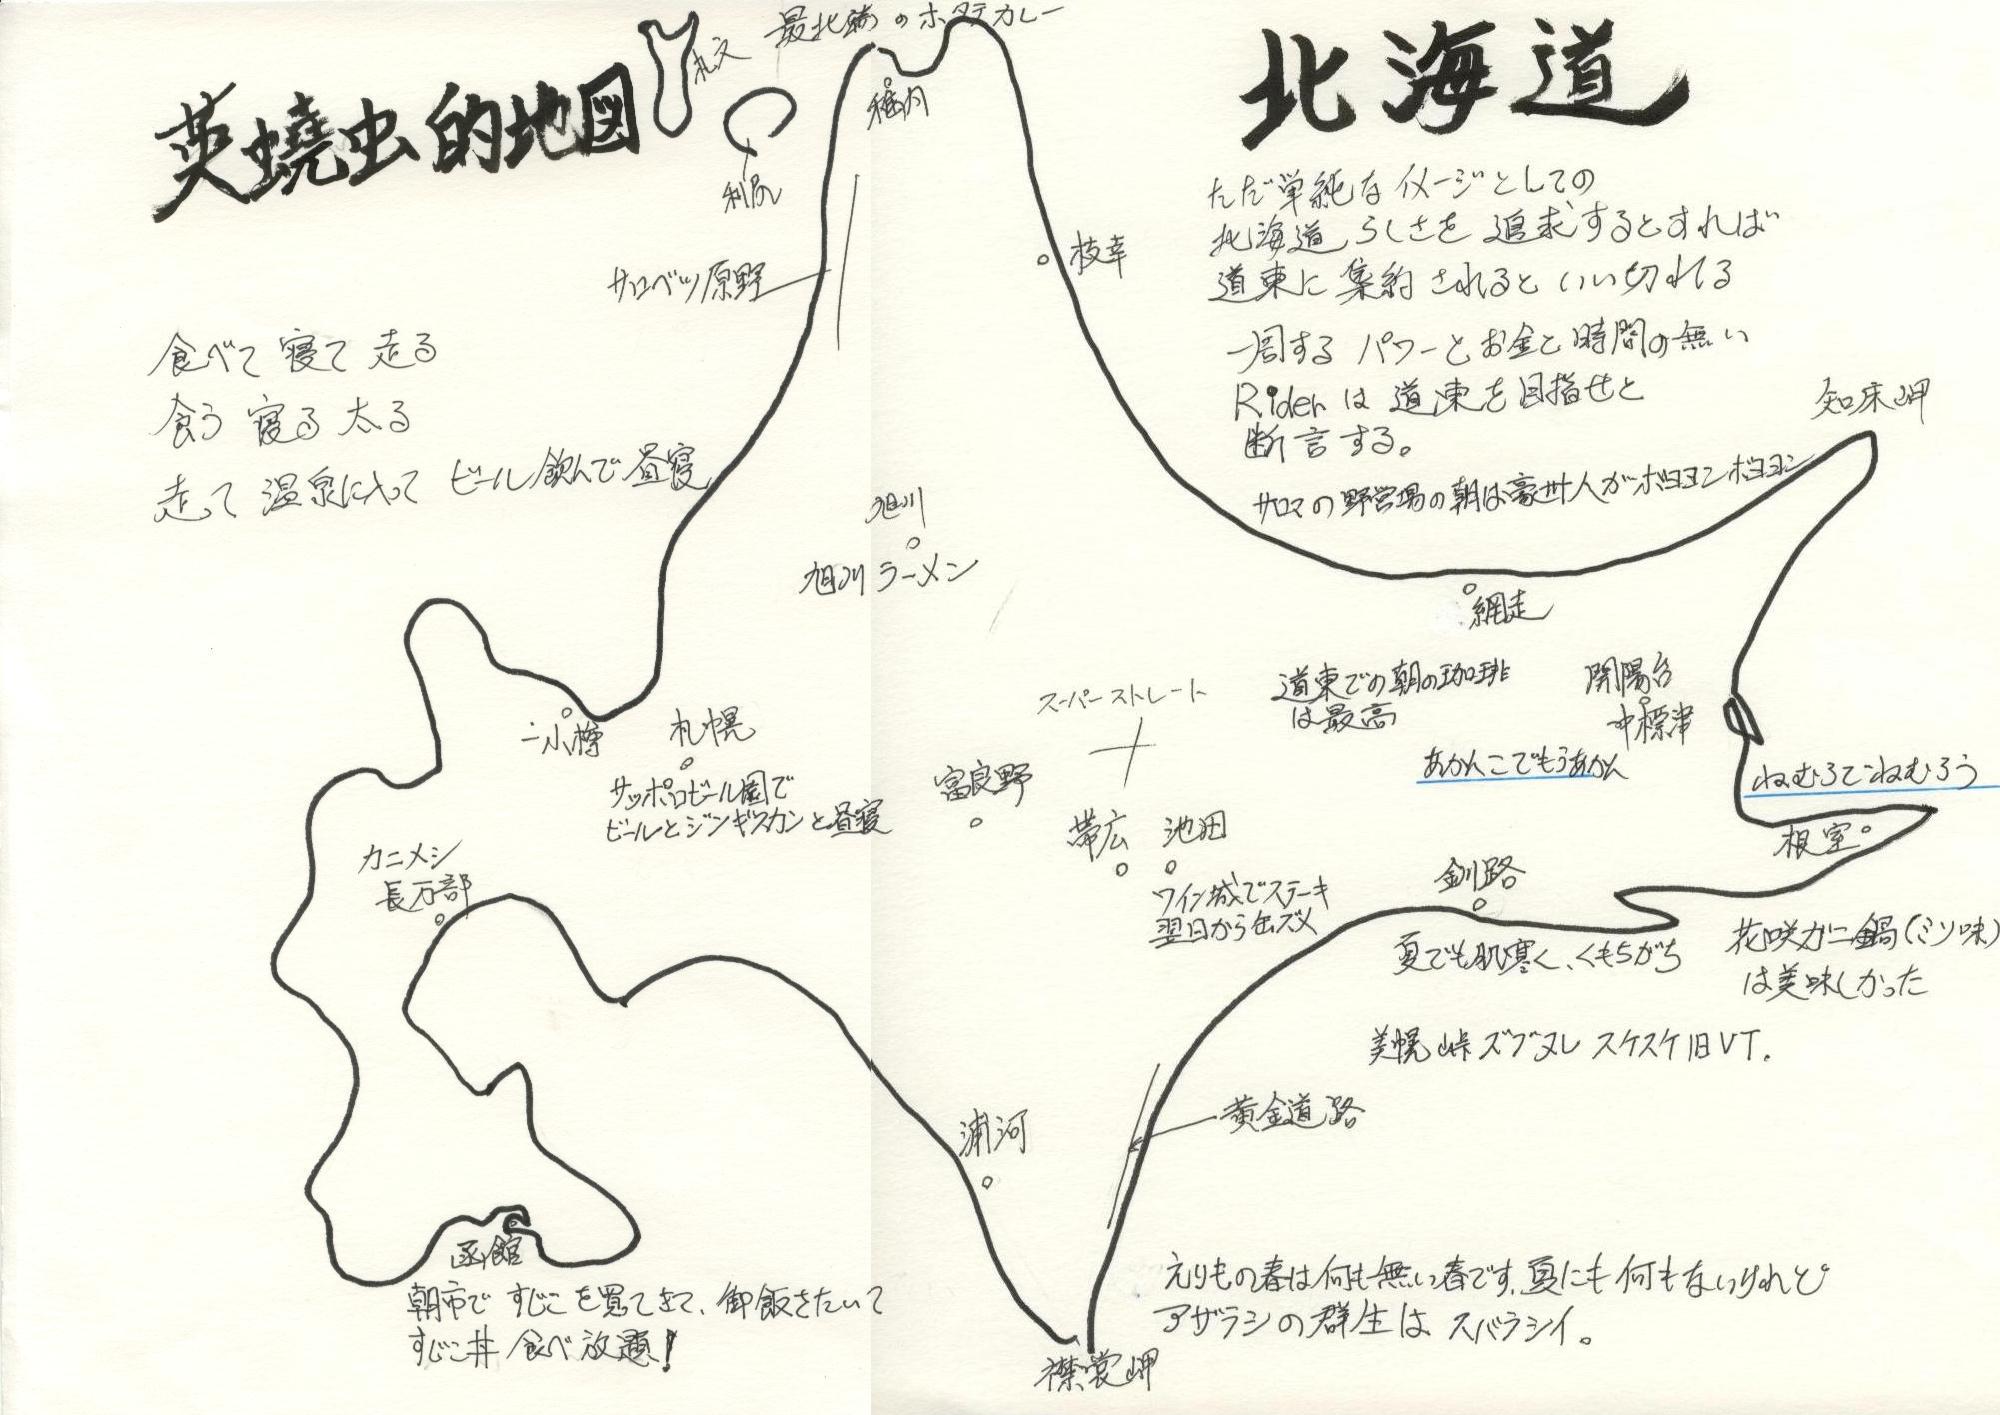 英蟯虫的地図
北海道
札文
利尻
最北端のホタテカレー
稚内
サロベツ原野
枝幸
ただ単純なイメージとしての
北海道らしさを追求するとすれば
道東に集約されるといい切れる
一周するパワーとお金と時間の無い
Riderは道東を目指せと
断言する。
食べて寝て走る
食う寝る太る
走って温泉に入ってビール飲んで昼寝
知床岬
サロマの野営場の朝は豪州人がボヨヨンボヨヨン
旭川
旭川ラーメン
網走
小樽
札幌
サッポロビール園で
ビールとジンギスカンと昼寝
スーパーストレート
道東での朝の珈琲
は最高
開陽台
中標津
あかんこでもうあかん
ねむろでねむろう
富良野
帯広
池田
ワイン城でステーキ
翌日から缶ズメ
根室
釧路
夏でも肌寒く、くもりがち
花咲ガニ鍋(ミソ味)
は美味しかった
カニメシ
長万部
美幌峠ズブヌレスケスケ旧VT.
黄金道路
浦河
函館
朝市ですじこを買てきて、御飯をたいて
すじこ丼食べ放題!
えりもの春は何も無い春です、夏にも何もないけれど
アザラシの群生はスバラシイ。
襟裳岬